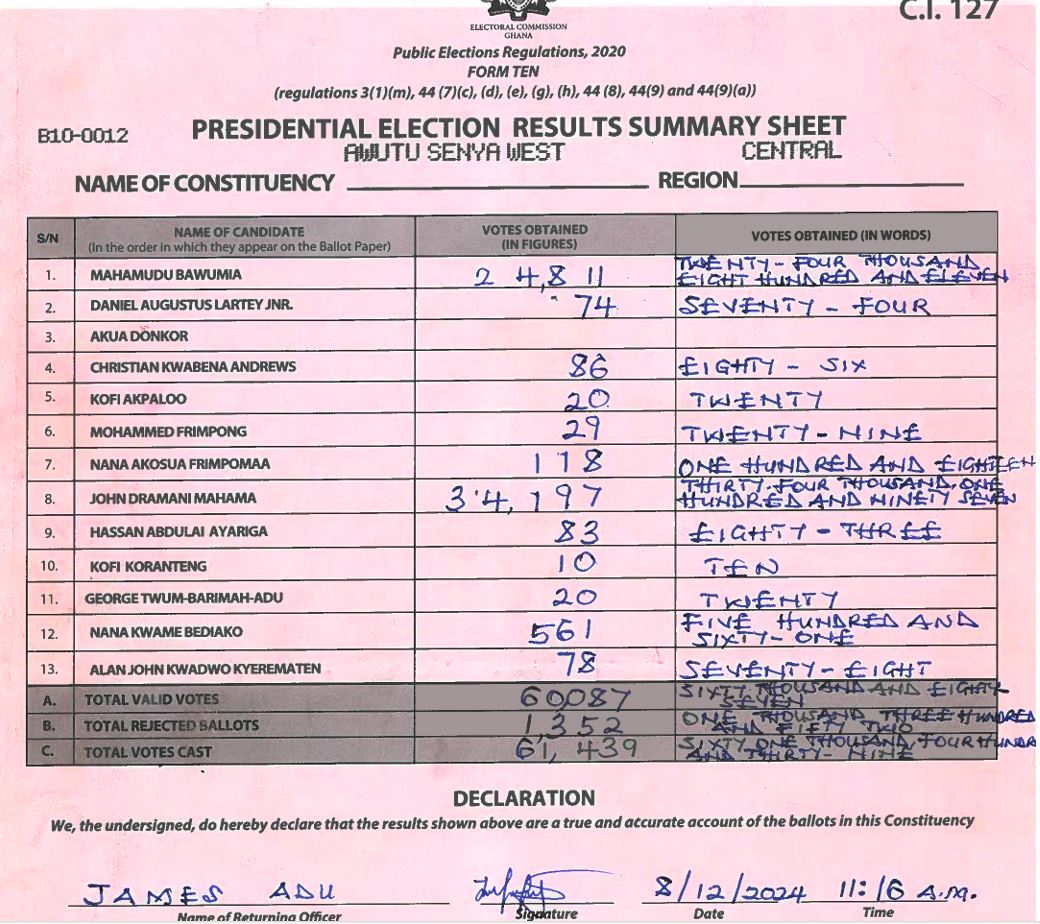 C.I. 127
ELECTORAL COMMISSION
GHANA
Public Elections Regulations, 2020
FORM TEN
(regulations 3(1)(m), 44 (7)(c), (d), (e), (g), (h), 44 (8), 44(9) and 44(9)(a))
B10-0012
PRESIDENTIAL ELECTION RESULTS SUMMARY SHEET
AWUTU SENYA WEST CENTRAL
NAME OF CONSTITUENCY REGION
S/N NAME OF CANDIDATE (In the order in which they appear on the Ballot Paper) VOTES OBTAINED (IN FIGURES) VOTES OBTAINED (IN WORDS)
1. MAHAMUDU BAWUMIA 24,811 TWENTY-FOUR THOUSAND EIGHT HUNDRED AND ELEVEN
2. DANIEL AUGUSTUS LARTEY JNR. 74 SEVENTY-FOUR
3. AKUA DONKOR
4. CHRISTIAN KWABENA ANDREWS 86 EIGHTY-SIX
5. KOFI AKPALOO 20 TWENTY
6. MOHAMMED FRIMPONG 29 TWENTY-NINE
7. NANA AKOSUA FRIMPOMAA 118 ONE HUNDRED AND EIGHTEEN
8. JOHN DRAMANI MAHAMA 34,197 THIRTY-FOUR THOUSAND, ONE HUNDRED AND NINETY SEVEN
9. HASSAN ABDULAI AYARIGA 83 EIGHTY-THREE
10. KOFI KORANTENG 10 TEN
11. GEORGE TWUM-BARIMAH-ADU 20 TWENTY
12. NANA KWAME BEDIAKO 561 FIVE HUNDRED AND SIXTY-ONE
13. ALAN JOHN KWADWO KYEREMATEN 78 SEVENTY-EIGHT
A. TOTAL VALID VOTES 60,087 SIXTY THOUSAND AND EIGHTY SEVEN
B. TOTAL REJECTED BALLOTS 1,352 ONE THOUSAND THREE HUNDRED AND FIFTY TWO
C. TOTAL VOTES CAST 61,439 SIXTY ONE THOUSAND, FOUR HUNDR AND THIRTY-NINE
DECLARATION
We, the undersigned, do hereby declare that the results shown above are a true and accurate account of the ballots in this Constituency
JAMES ADU 8/12/2024 11:16 A.M.
Name of Returning Officer Signature Date Time